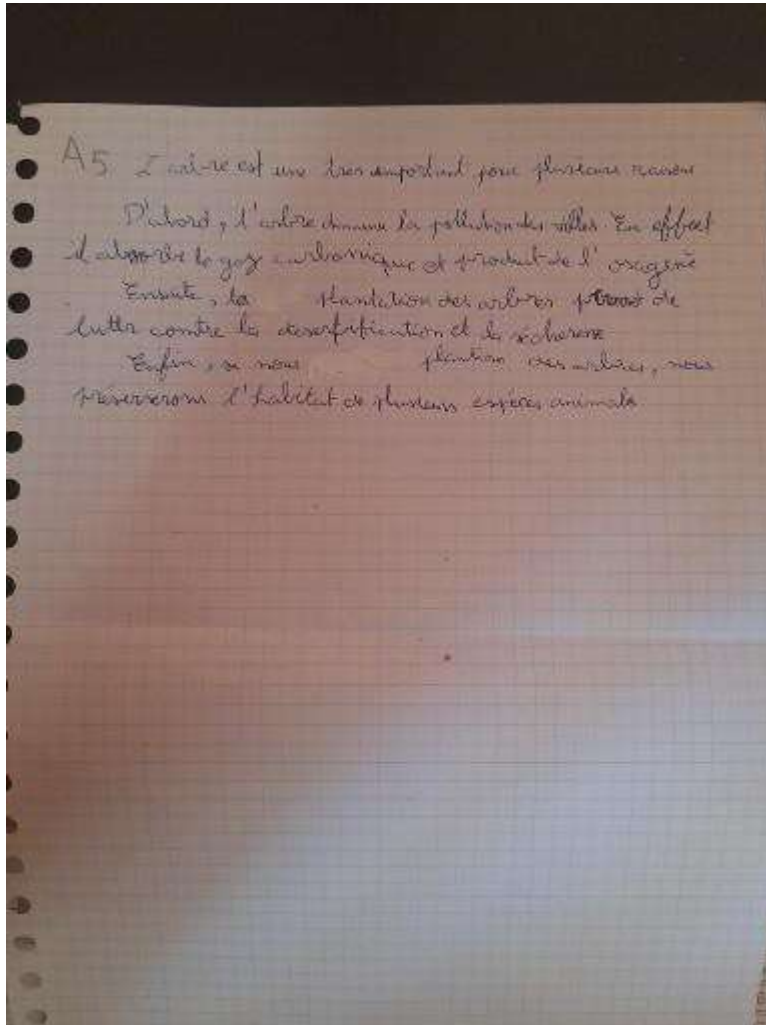 A5 L'arbre est une tres important pour plusieurs raisons
D'abord, l'arbre diminue la pollution des villes En effect
il absorbe le gaz carbonique et produit de l'oxagene
Ensuite, la plantation des arbres de
luttr contre la desertification et la sécheresse
Enfin, si nous plantions des arbres, nous
préserverons l'habitat de plusieurs espèces animals